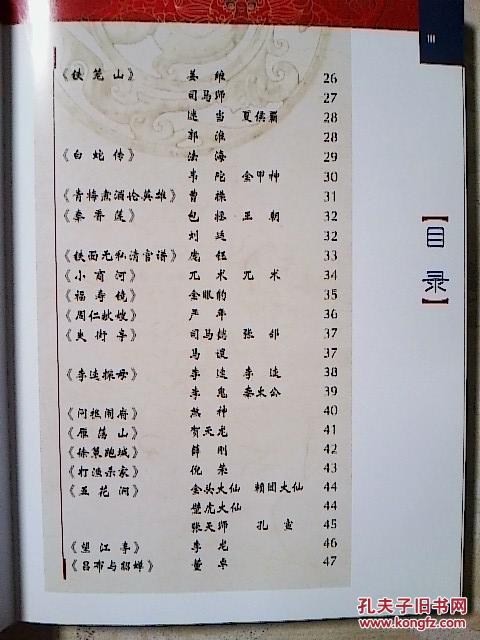 III
《铁笼山》 姜维 26
司马师 27
迷当 夏侯霸 28
郭淮 28
《白蛇传》 法海 29
韦陀 金甲神 30
《青梅煮酒论英雄》 曹操 31
《秦香莲》 包拯 王朝 32
刘廷 32
《铁面无私清官谱》 庞钰 33
《小商河》 兀术 兀术 34
《福寿镜》 金眼豹 35
《周仁献嫂》 严年 36
《失街亭》 司马懿 张郃 37
马谡 37
《李逵探母》 李逵 李逵 38
李鬼 秦太公 39
《问樵闹府》 煞神 40
《雁荡山》 贺天龙 41
《徐策跑城》 薛刚 42
《打渔杀家》 倪荣 43
《五花洞》 金头大仙 赖团大仙 44
壁虎大仙 44
张天师 孔宣 45
《望江亭》 李龙 46
《吕布与貂蝉》 董卓 47
【目录】
孔夫子旧书网
www.kongfz.com